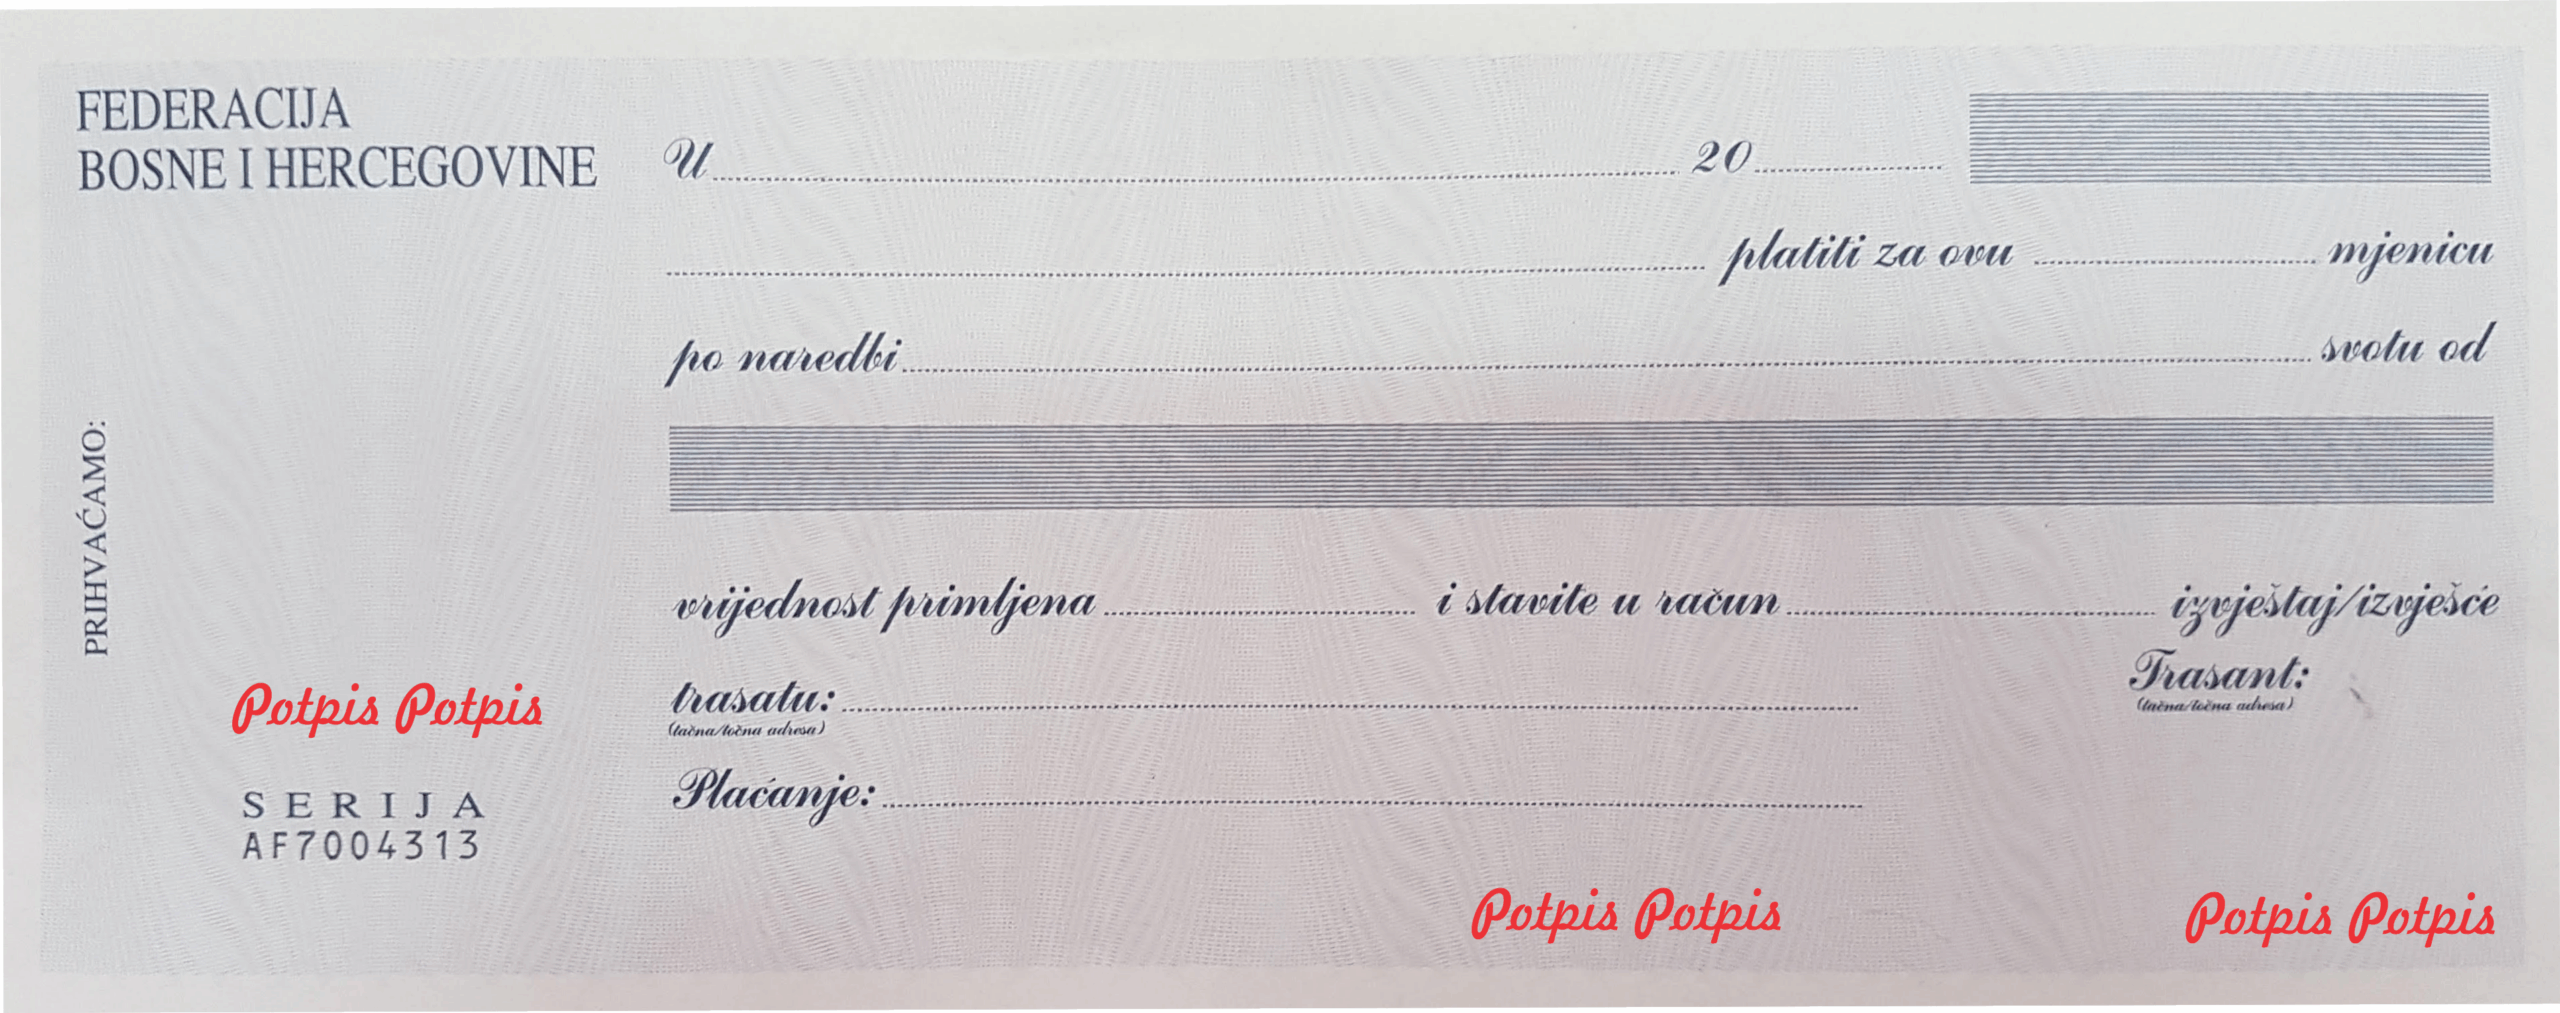 FEDERACIJA
BOSNE I HERCEGOVINE
U 20
platiti za ovu mjenicu
po naredbi svotu od
PRIHVAĆAMO:
vrijednost primljena i stavite u račun izvještaj/izvješće
trasatu:
(tačna/točna adresa)
Trasant:
(tačna/točna adresa)
Plaćanje:
Potpis Potpis
SERIJA
AF7004313
Potpis Potpis
Potpis Potpis